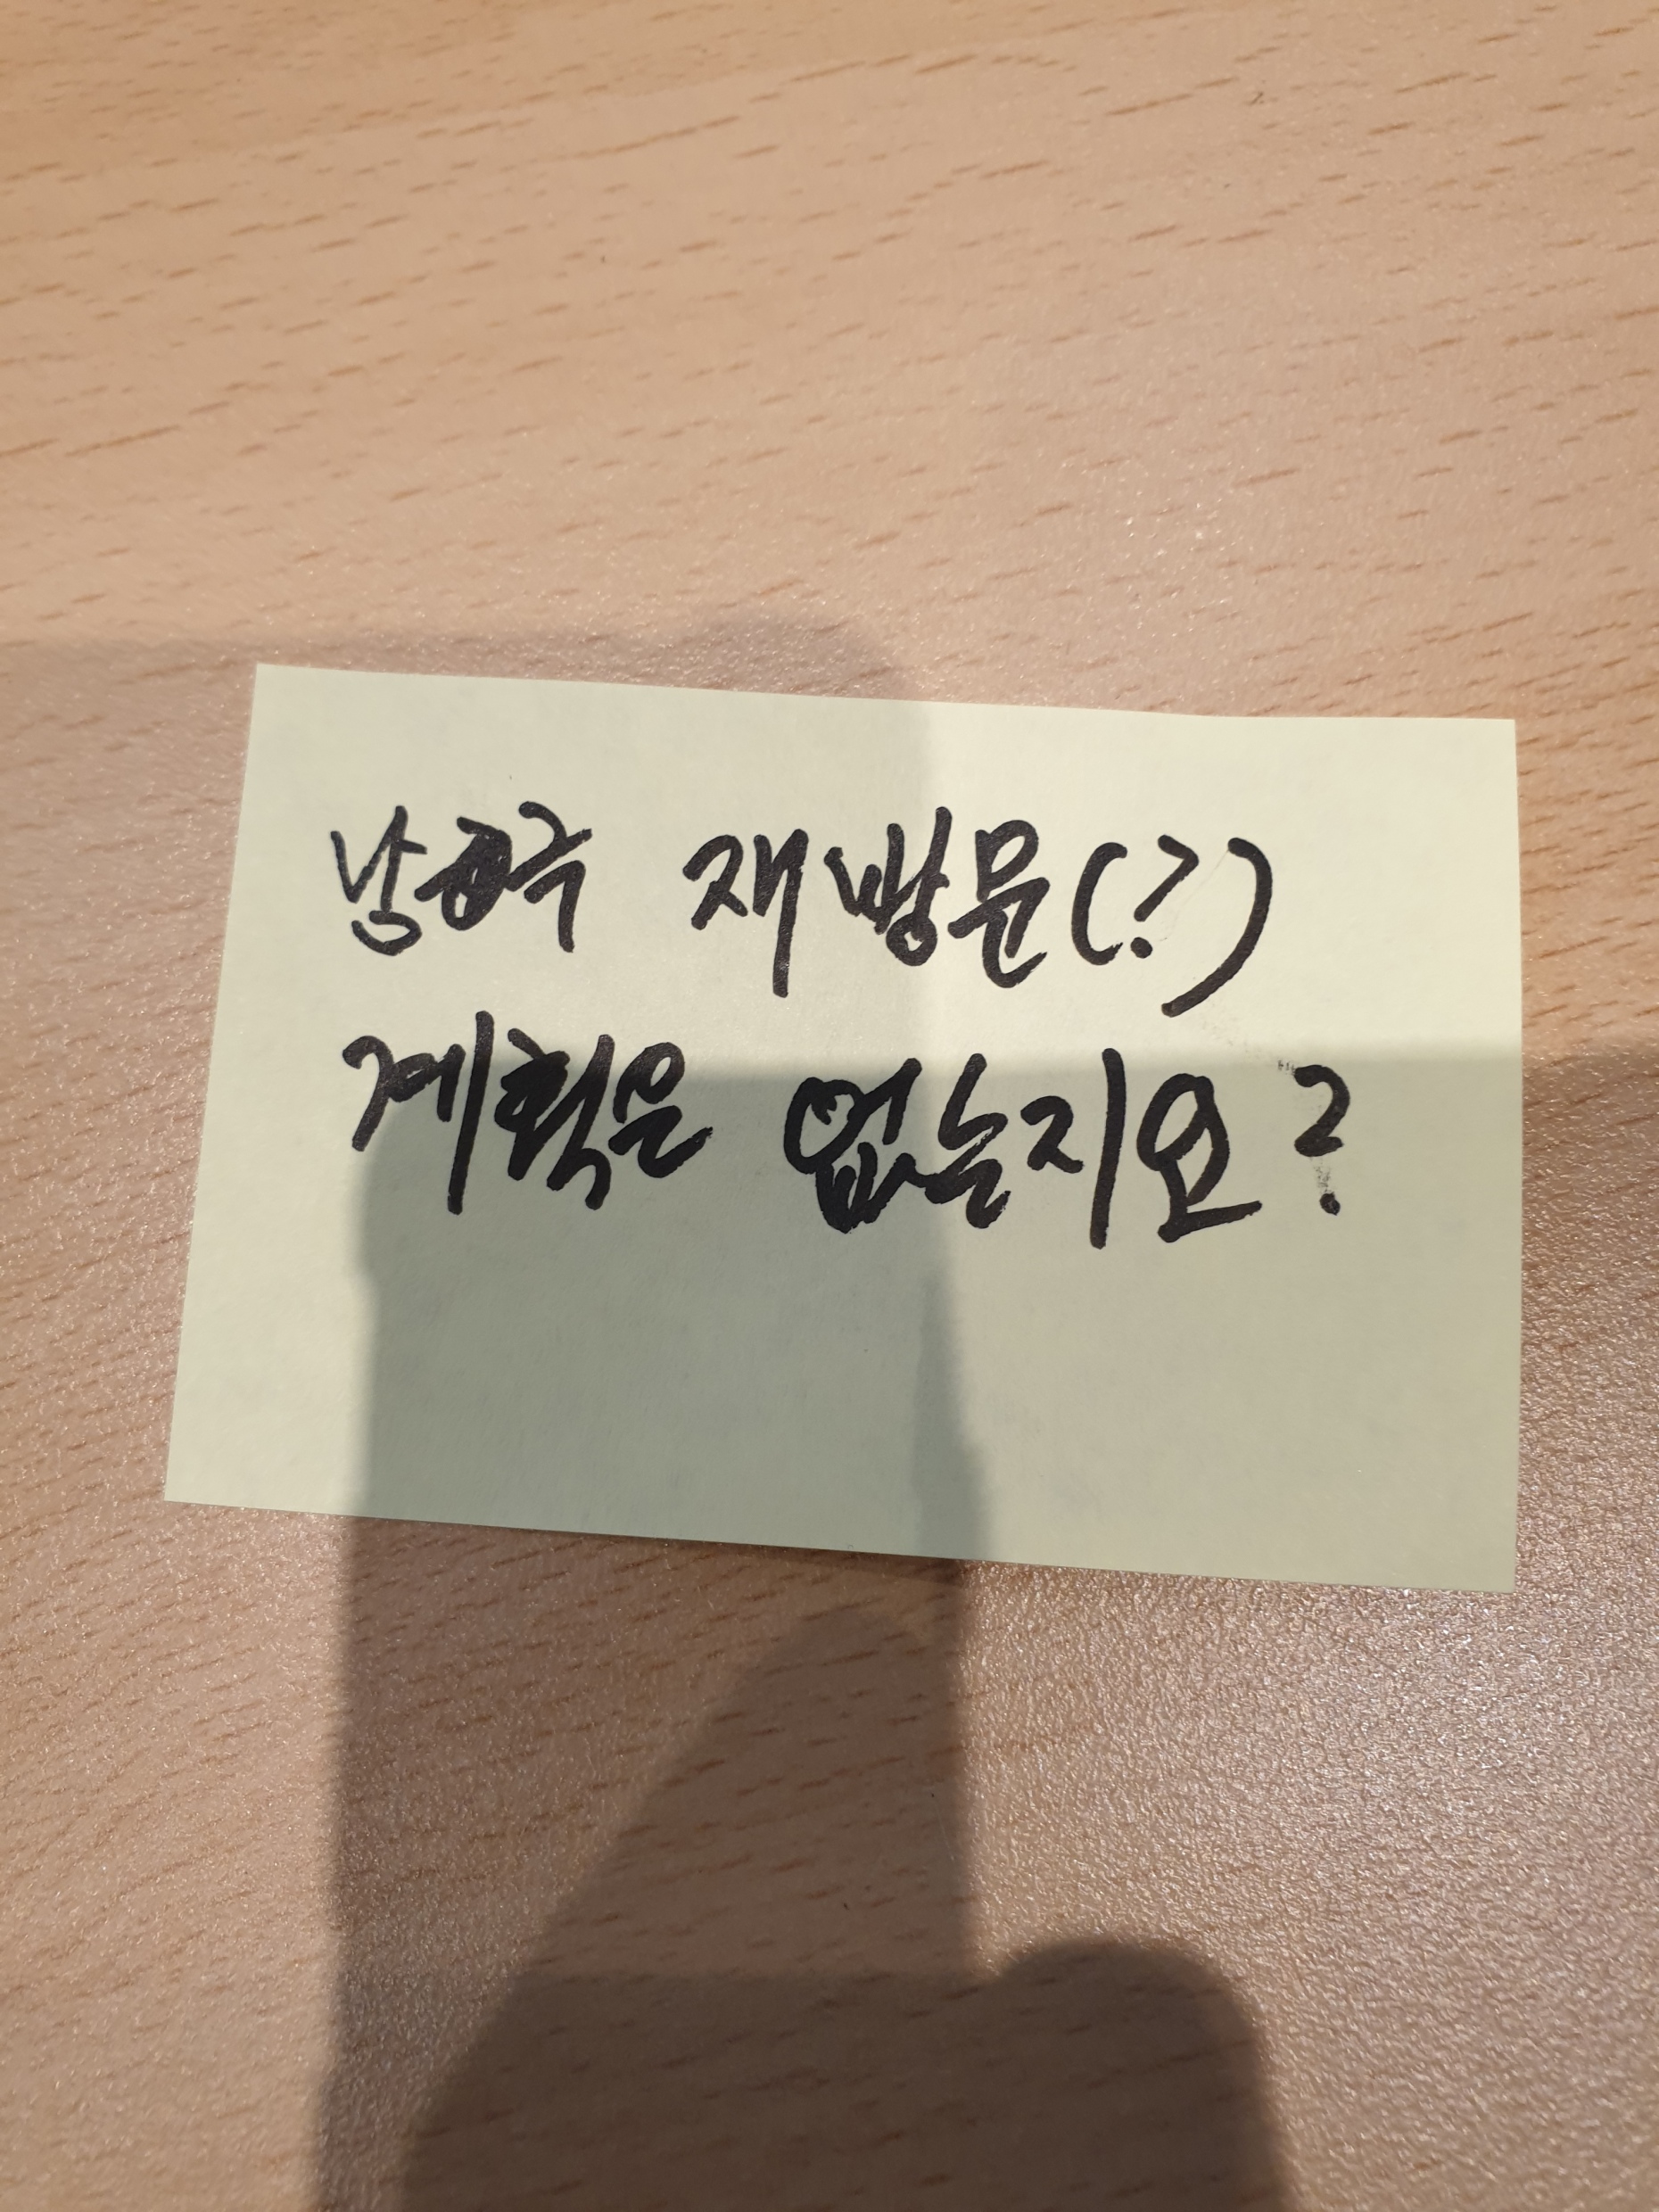 남극 재방문(?)
계획은 없는지요?